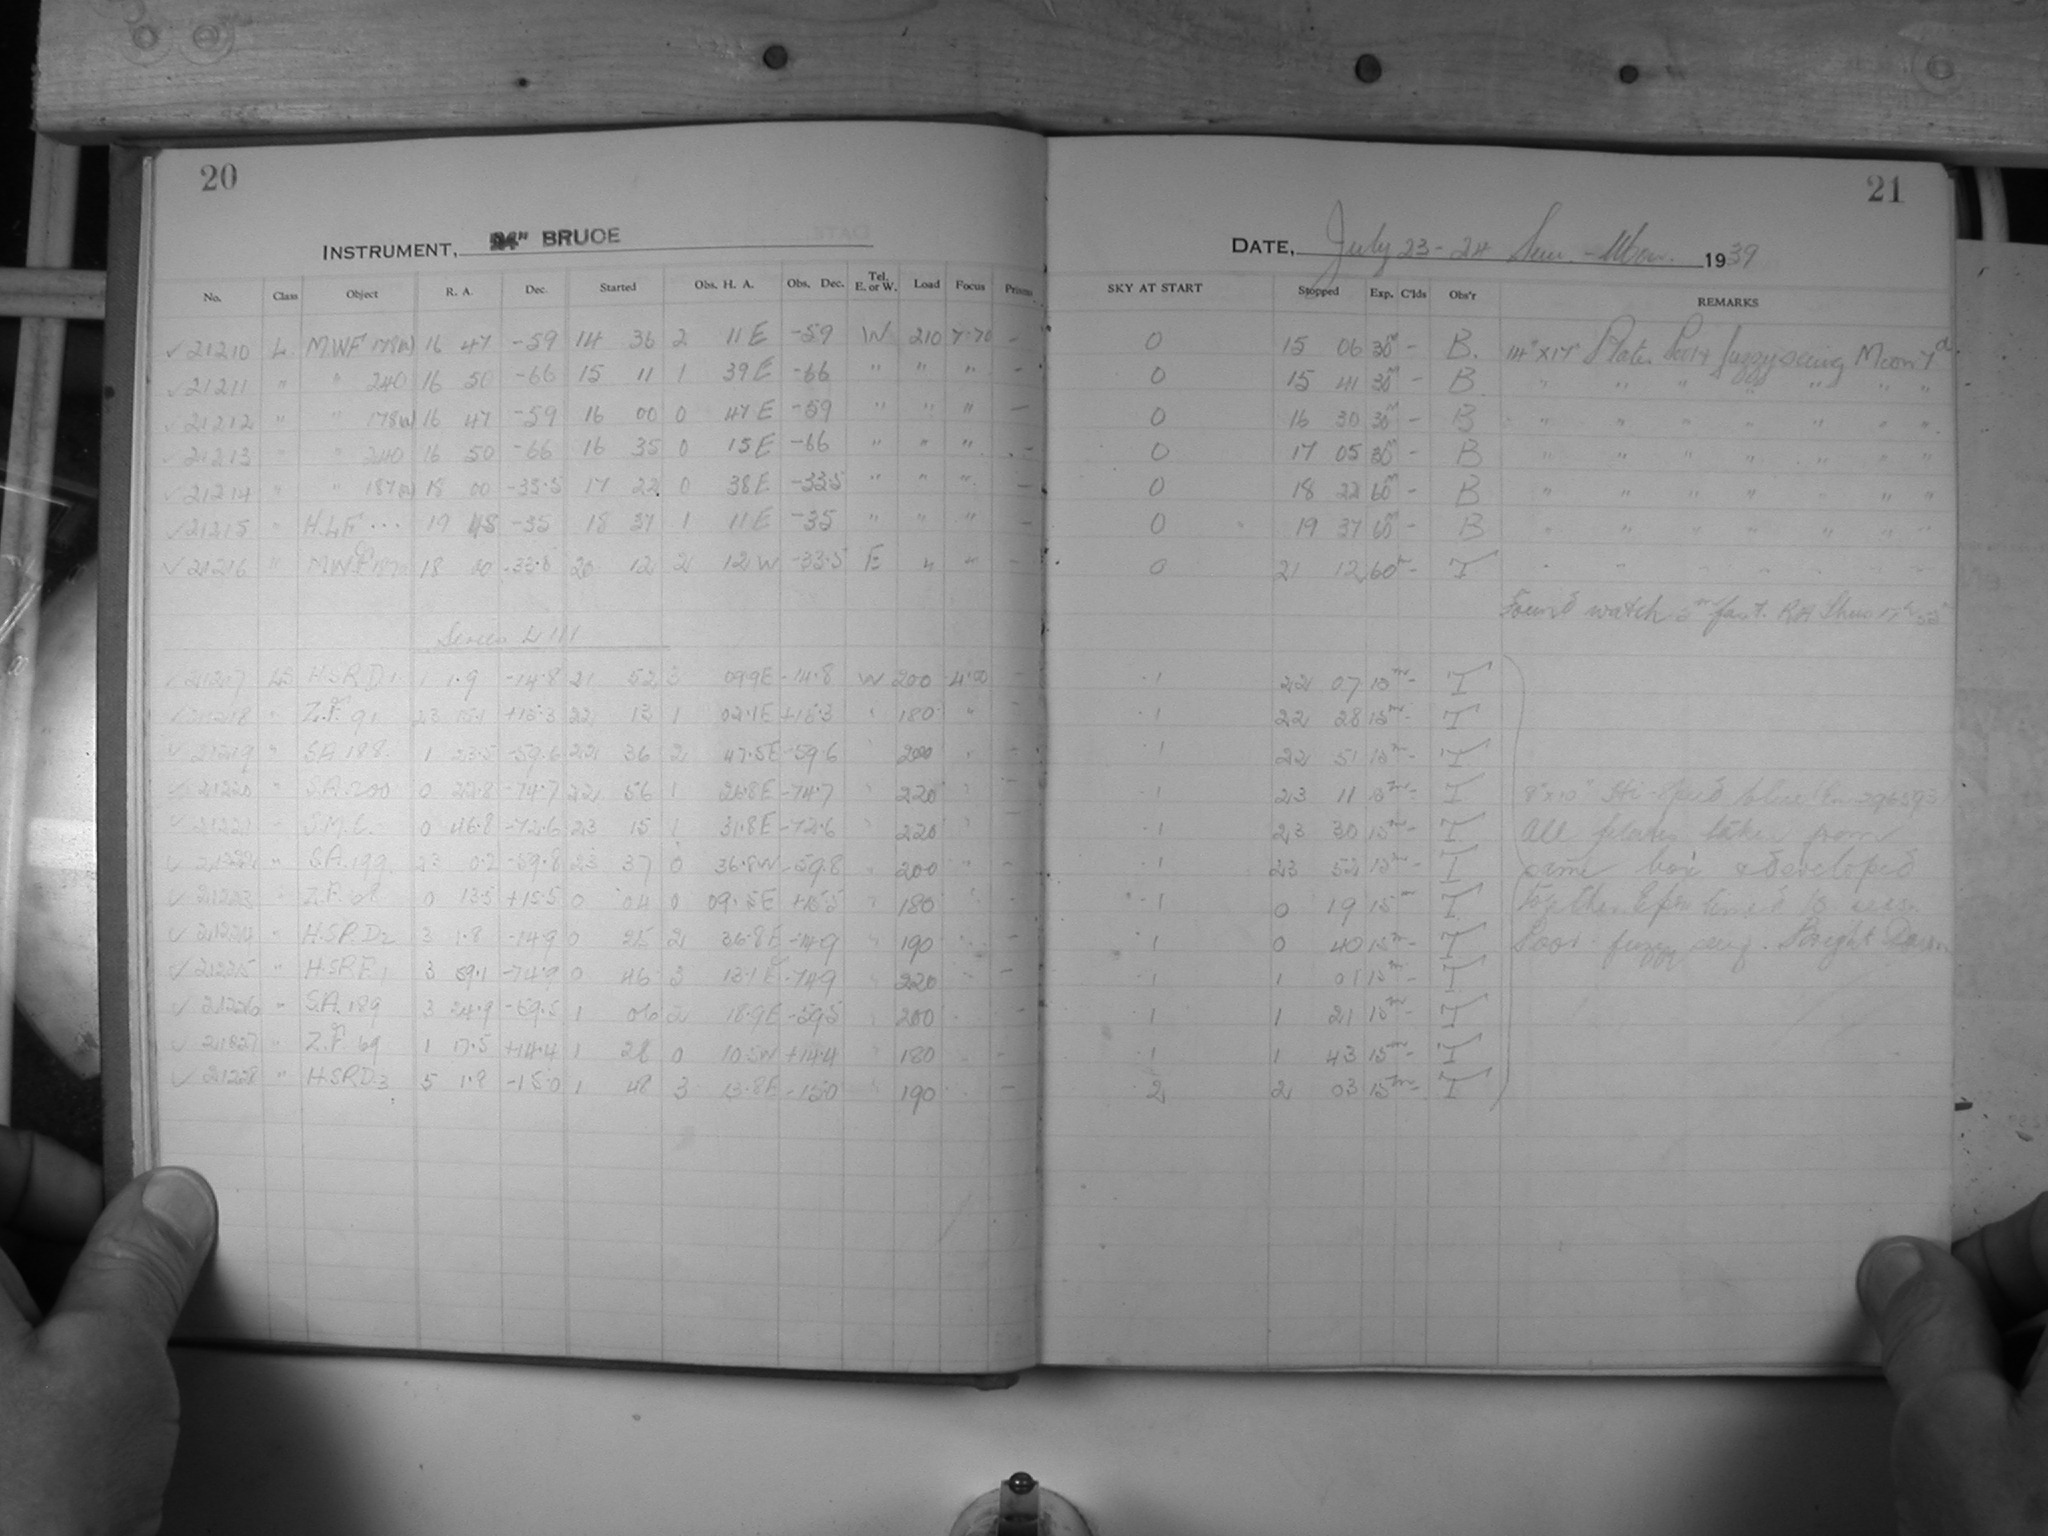 20
INSTRUMENT, 24" BRUCE
No. Class Object R. A. Dec. Started Obs. H. A. Obs. Dec. Tel. E. or W. Load Focus Prisms
✓ 21210 L MWF 178W 16 47 -59 14 36 2 11 E -59 W 210 7.70 -
✓ 21211 " " 240 16 50 -66 15 11 1 39 E -66 " " " -
✓ 21212 " " 178W 16 47 -59 16 00 0 47 E -59 " " " -
✓ 21213 " " 240 16 50 -66 16 35 0 15 E -66 " " " -
✓ 21214 " " 187W 18 00 -33.5 17 22 0 38 E -33.5 " " " -
✓ 21215 " H.L.F ... 19 48 -35 18 37 1 11 E -35 " " " -
✓ 21216 " MWF 187 18 00 -33.5 20 12 2 12 W -33.5 E " " -
Series
✓ 21217 LS H.S.P.D1 1 1.9 -14.8 21 52 3 09.9E -14.8 W 200 4.00 -
✓ 21218 " Z.F. 91 23 +15.3 22 13 1 02.1E +15.3 " 180 "
✓ 21219 " S.A. 188 1 23.5 -59.6 22 36 2 47.5E -59.6 " 200 " -
✓ 21220 " S.A. 200 0 22.8 -74.7 22 56 1 26.8E -74.7 " 220 " -
✓ 21221 " S.M.C. 0 46.8 -72.6 23 15 1 31.8E -72.6 " 220 " -
✓ 21222 " S.A. 199 23 0.2 -59.8 23 37 0 36.8W -59.8 " 200 " -
✓ 21223 " Z.F. 68 0 13.5 +15.5 0 04 0 09.5E +15.5 " 180 " -
✓ 21224 " H.S.P.D2 3 1.8 -14.9 0 25 2 36.8E -14.9 " 190 -
✓ 21225 " H.S.P.F.1 3 59.1 -74.9 0 46 3 13.1E -74.9 " 220 -
✓ 21226 " S.A. 189 3 24.9 -59.5 1 06 2 18.9E -59.5 " 200 -
✓ 21227 " Z.F. 69 1 17.5 +14.4 1 28 0 10.5W +14.4 " 180 -
✓ 21228 " H.S.P.D.3 5 1.9 -15.0 1 48 3 13.8E -15.0 " 190 -
21
DATE, July 23-24 Sun. - Mon. 1939
SKY AT START Stopped Exp. C'lds Obs'r REMARKS
0 15 06 30m - B. 14" x 17" Plate. Poor fuzzy seeing Moon 7d
0 15 41 30m - B " " " " " " "
0 16 30 30m - B " " " " " " "
0 17 05 30m - B " " " " " " "
0 18 22 60m - B " " " " " " "
0 19 37 60m - B " " " " " " "
0 21 12 60m - T " " " " " " "
Found watch fast.
1 22 07 15m - T
1 22 28 15m - T
1 22 51 15m - T
1 23 11 15m - T 8" x 10" Hi-Speed blue Em 296593
1 23 30 15m - T All plates taken from
1 23 52 15m - T same box & developed
1 0 19 15m - T together.
1 0 40 15m - T Poor fuzzy seeing. Bright Dawn
1 1 01 15m - T
1 1 21 15m - T
1 1 43 15m - T
2 2 03 15m - T